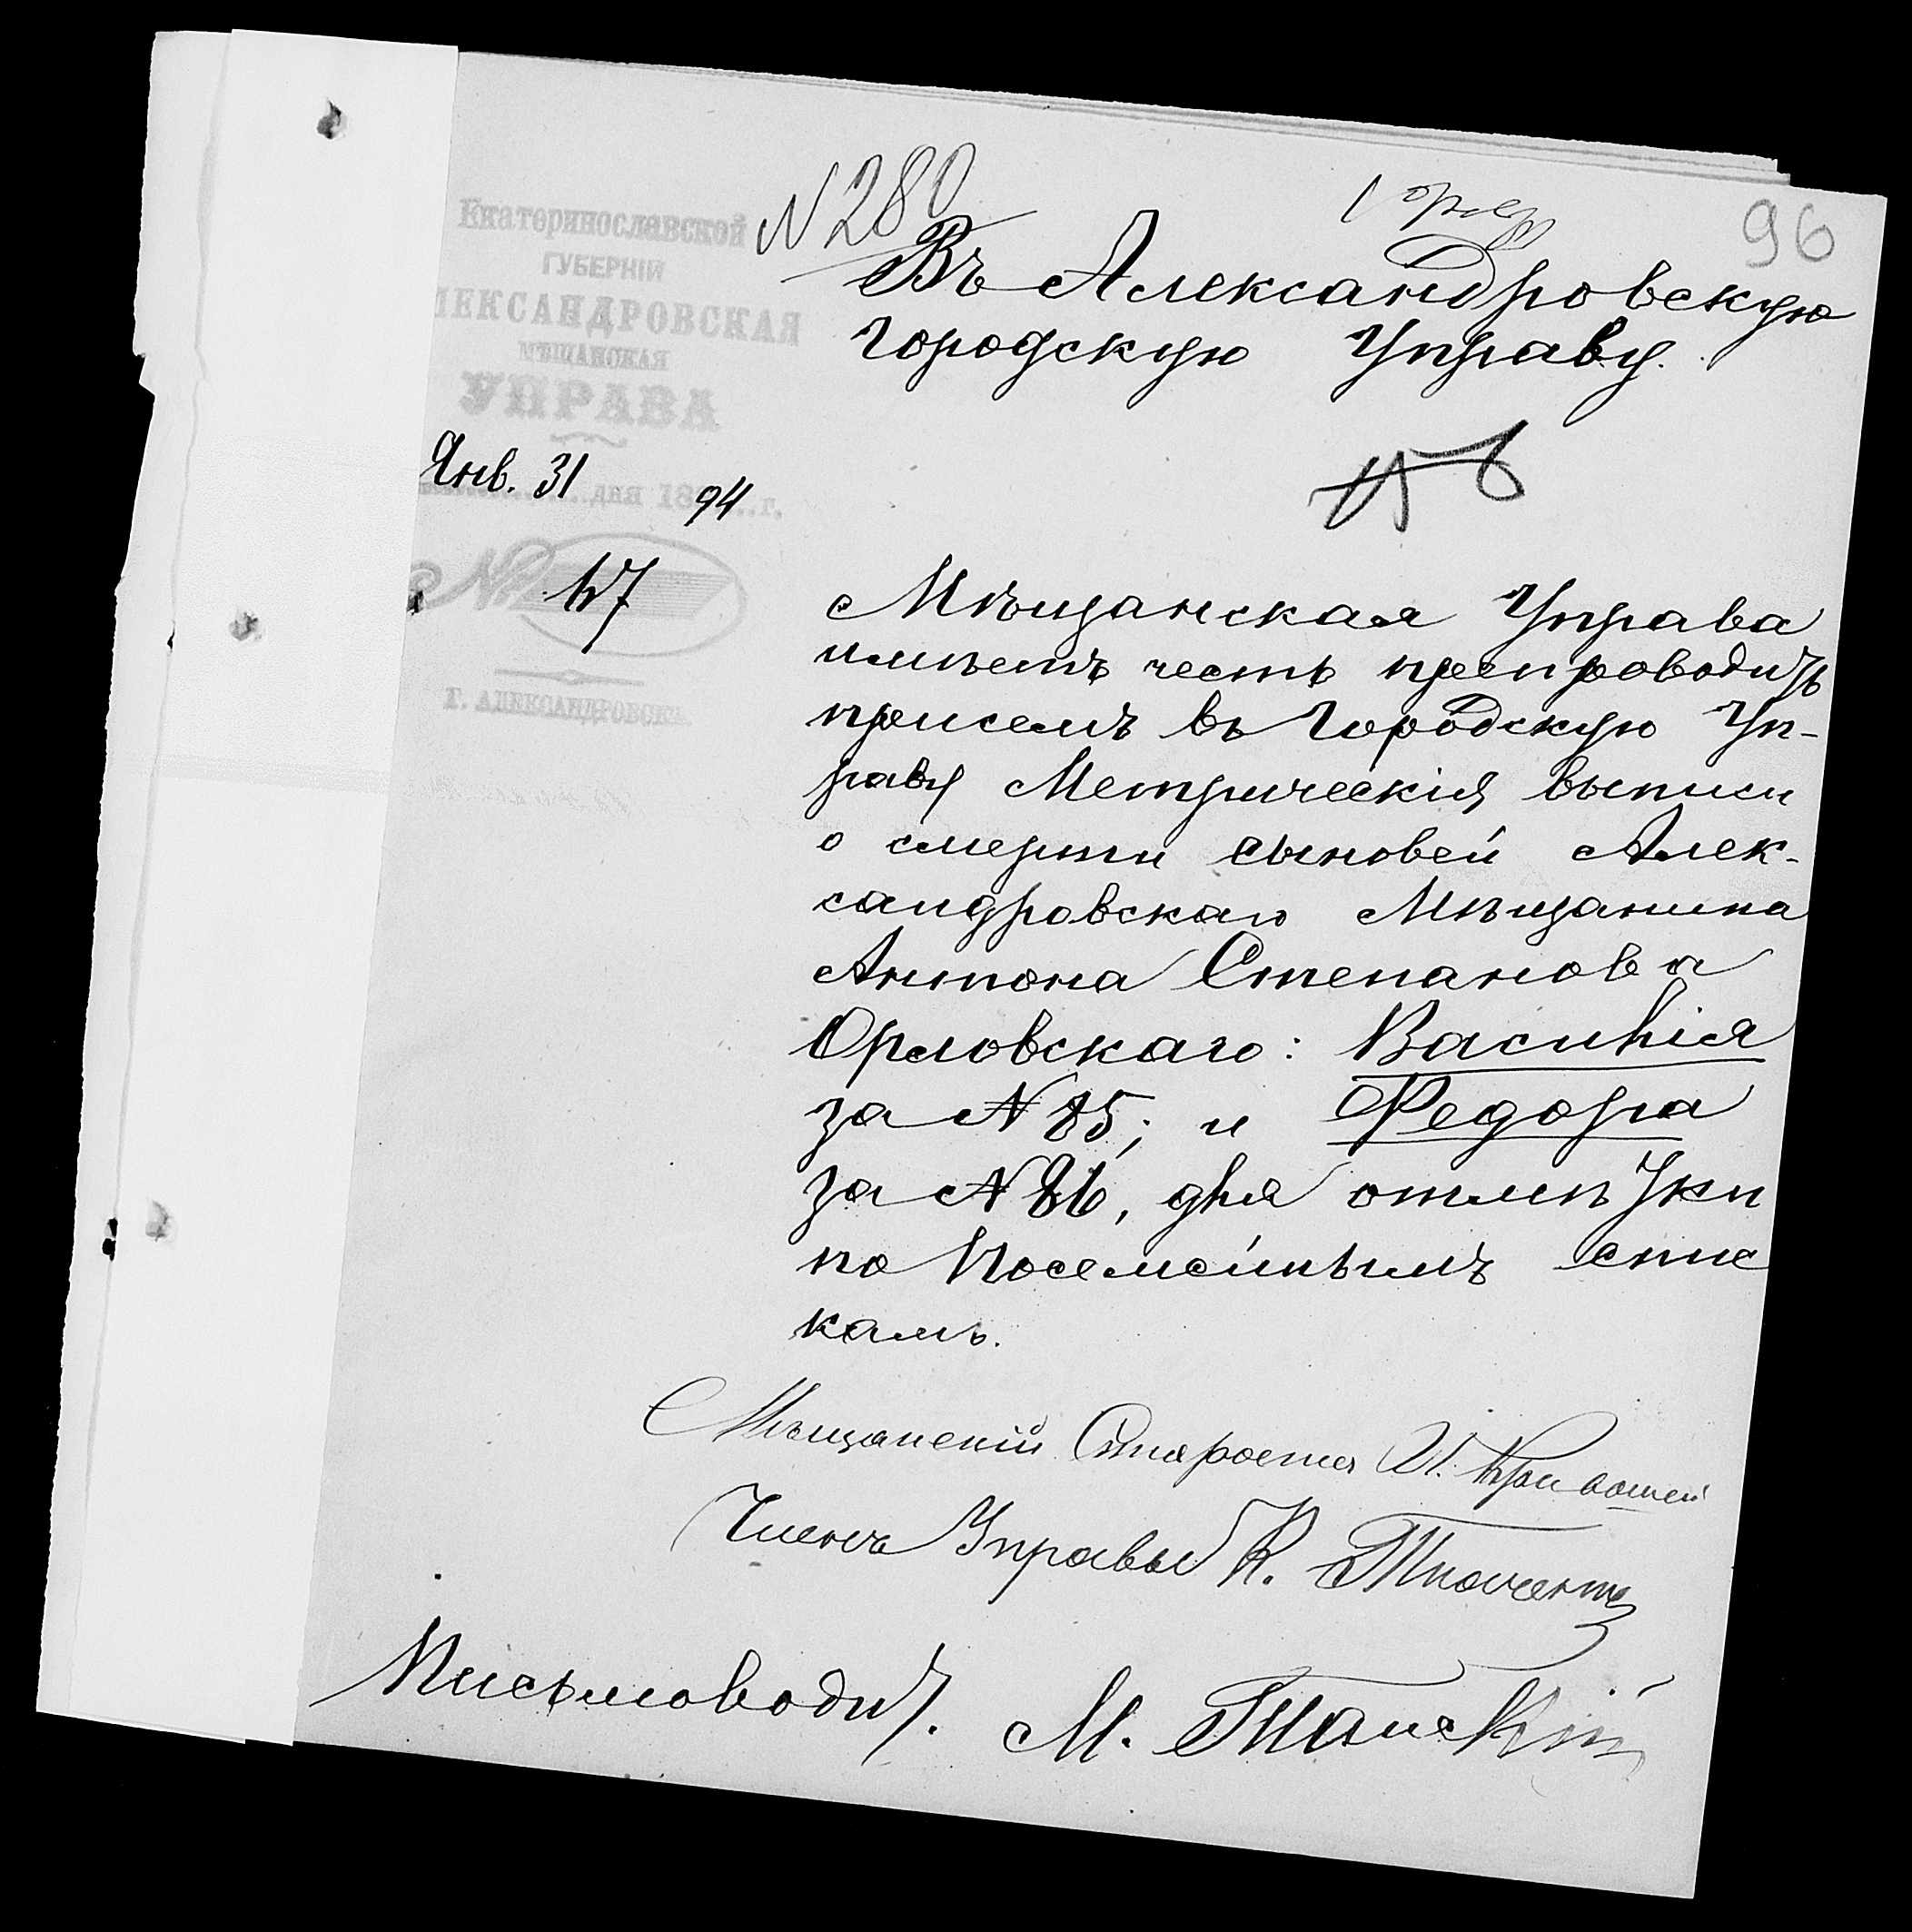 96
N 280
Екатеринославской
ГУБЕРНІИ
ЛЕКСАНДРОВСКАЯ
МѢЩАНСКАЯ
УПРАВА
Янв. 31 дня 1894 г.
№ 47
Г. АЛЕКСАНДРОВСКЪ
Въ Александровскую
Городскую Управу.
Мѣщанская Управа
имѣетъ честь препроводить
присемъ въ Городскую Уп-
раву Метрическія выписи
о смерти сыновей Алек-
сандровскаго Мѣщанина
Антона Степанова
Орловскаго: Василія
за N 85; и Федора
за N 86, для отмѣтки
по Посемейнымъ спис
камъ.
Мѣщанскій Староста И. Кривошей
Членъ Управы К.
Письмоводит. М.